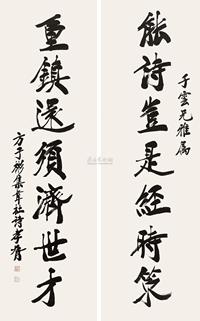 子雲兄雅属
能詩豈是經時策
重鎮還須濟世才
集韋杜詩孝胥